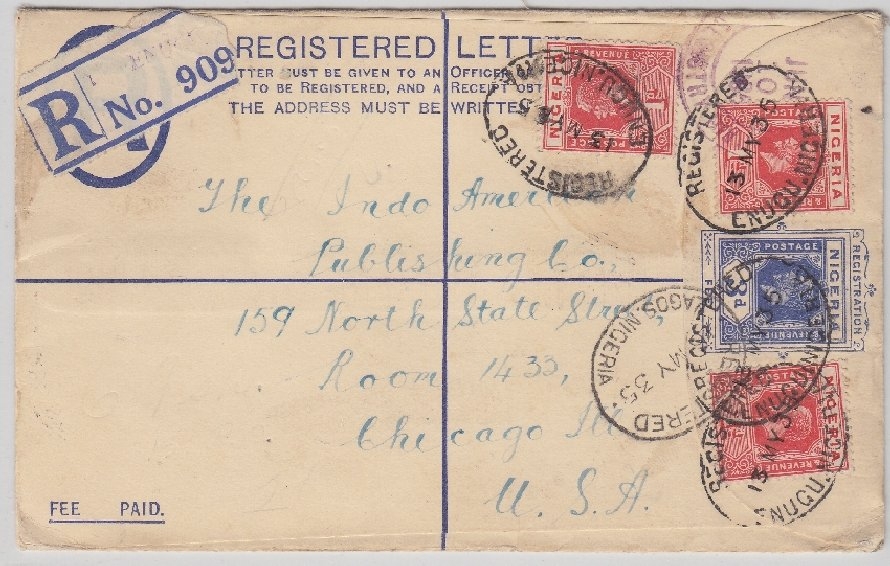 REGISTERED LETTE
TTER MUST BE GIVEN TO AN OFFICER
TO BE REGISTERED, AND A RECEIPT OBT
THE ADDRESS MUST BE WRITTE
R No. 909
The Indo American
Publishing Co.,
159 North State Street,
Room 1433,
Chicago Ill
U. S. A.
FEE PAID.
NIGERIA
POSTAGE
REVENUE
REGISTERED
13 MY 35
ENUGU. NIGERIA
NIGERIA
REGISTERED
13 MY 35
ENUGU. NIGERIA
REGISTRATION
NIGERIA
POSTAGE
REVENUE
LAGOS. NIGERIA
MY 35
NIGERIA
POSTAGE
& REVENUE
13 MY 3